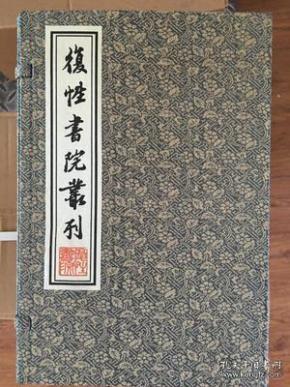 復性書院叢刊